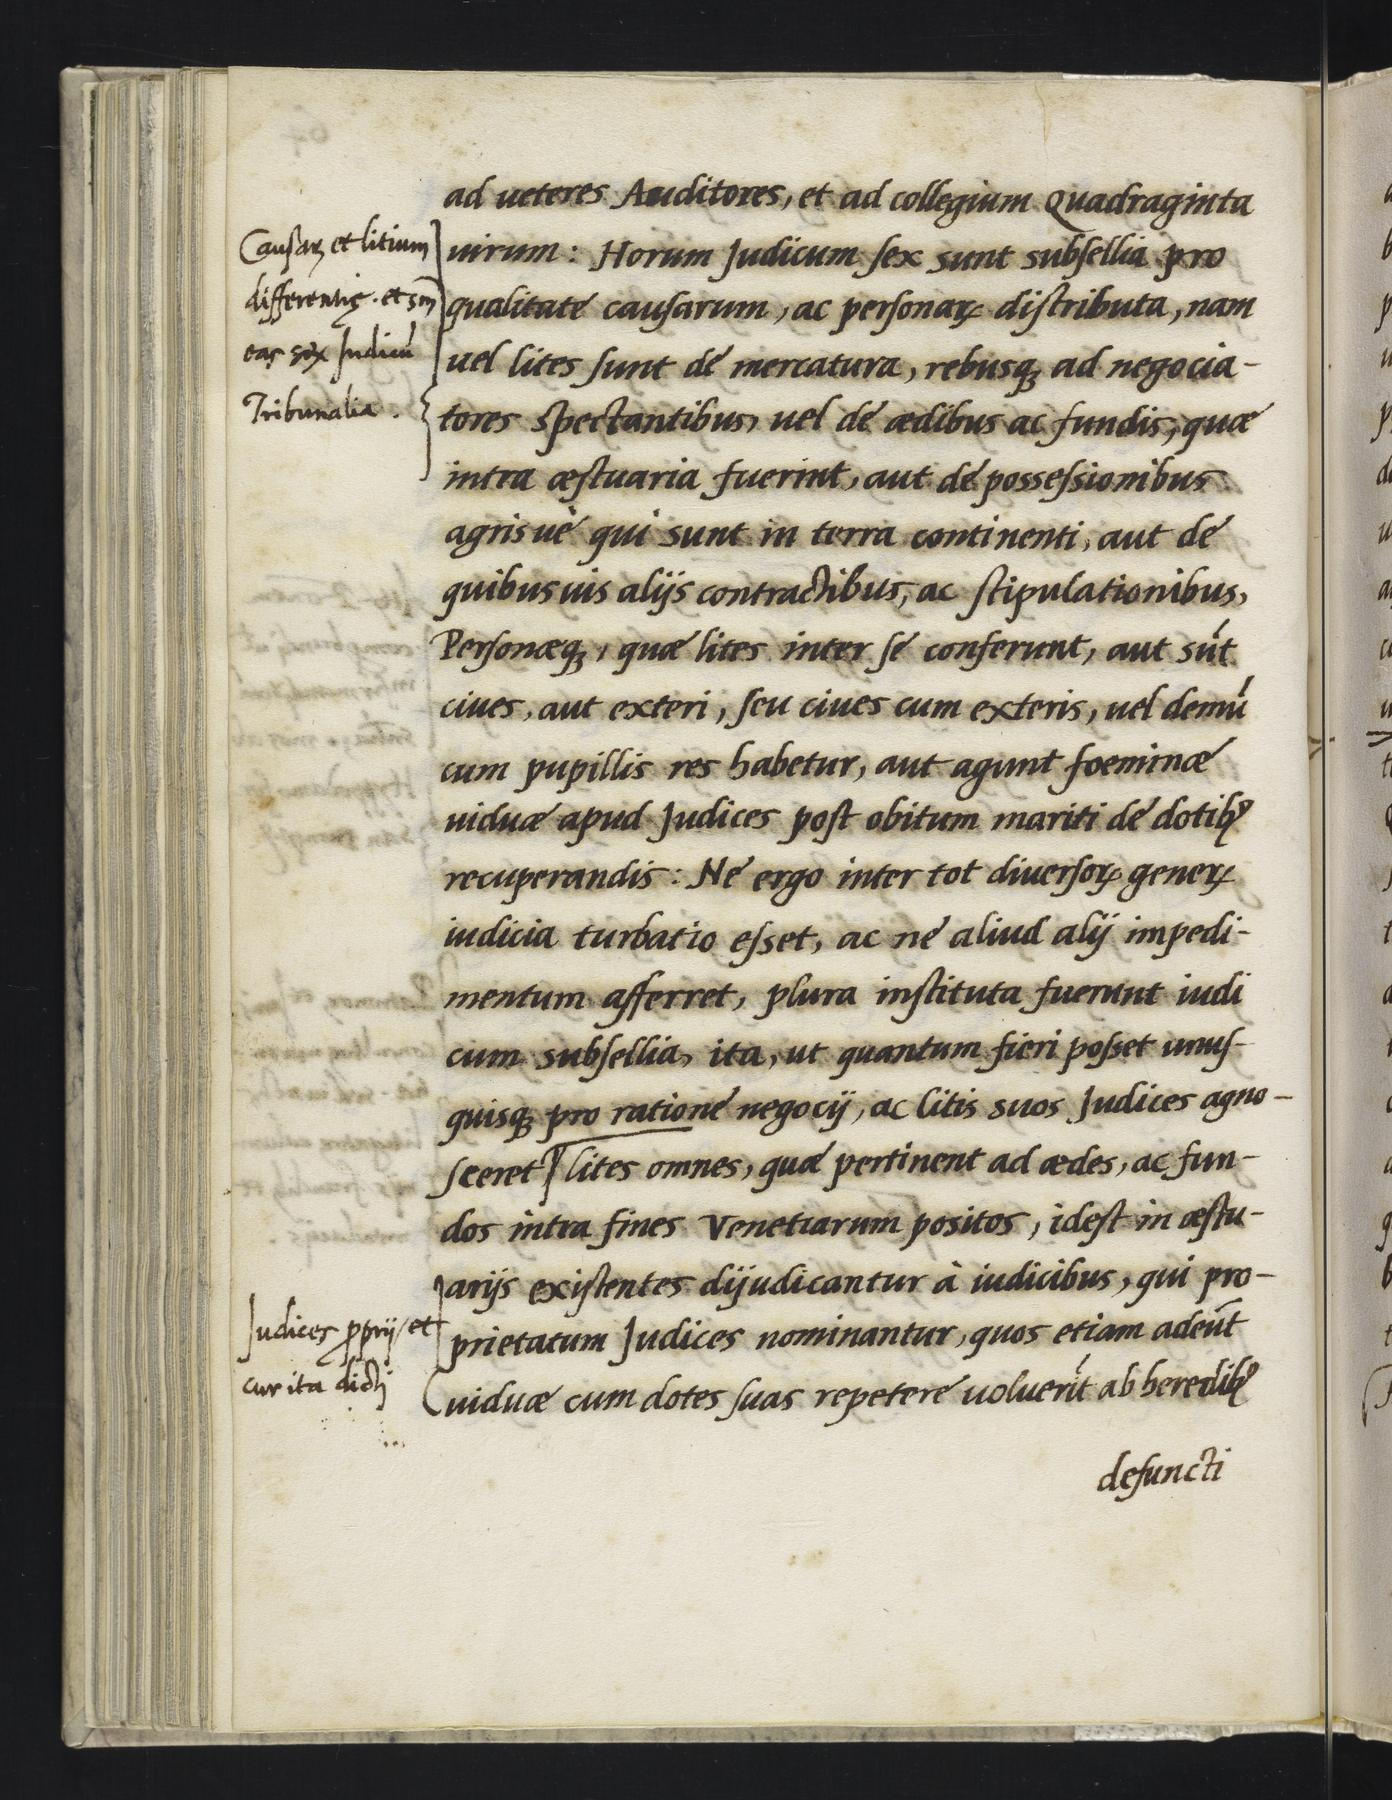 ad ueteres Auditores, et ad collegium Quadraginta
uirum: Horum Judicum sex sunt subsellia pro
qualitate causarum, ac personaꝝ distributa, nam
uel lites sunt de mercatura, rebusqꝫ ad negocia-
tores spectantibus, uel de ædibus ac fundis, quæ
intra æstuaria fuerint, aut de possessionibus
agris uè qui sunt in terra continenti, aut de
quibusuis alijs contractibus, ac stipulationibus,
Personæqꝫ, quæ lites inter se conferunt, aut sūt
ciues, aut exteri, seu ciues cum exteris, uel demū
cum pupillis res habetur, aut agunt foeminæ
uiduæ apud Judices post obitum mariti de dotibꝰ
recuperandis: Ne ergo inter tot diuersoꝝ geneꝝ
iudicia turbatio esset, ac ne aliud alij impedi-
mentum afferret, plura instituta fuerunt iudi
cum subsellia, ita, ut quantum fieri posset unus-
quisqꝫ pro ratione negocij, ac litis suos Judices agno-
sceret lites omnes, quæ pertinent ad ædes, ac fun-
dos intra fines Venetiarum positos, idest in æstu-
arijs existentes dijudicantur à iudicibus, qui pro-
prietatum Judices nominantur, quos etiam adeūt
uiduæ cum dotes suas repetere uoluerīt ab heredibꝰ
defuncti
Causaꝝ et litium
differentię. et sm̄
eas sex Judicū
Tribunalia.
Judices ꝓprij, et
cur ita dicti